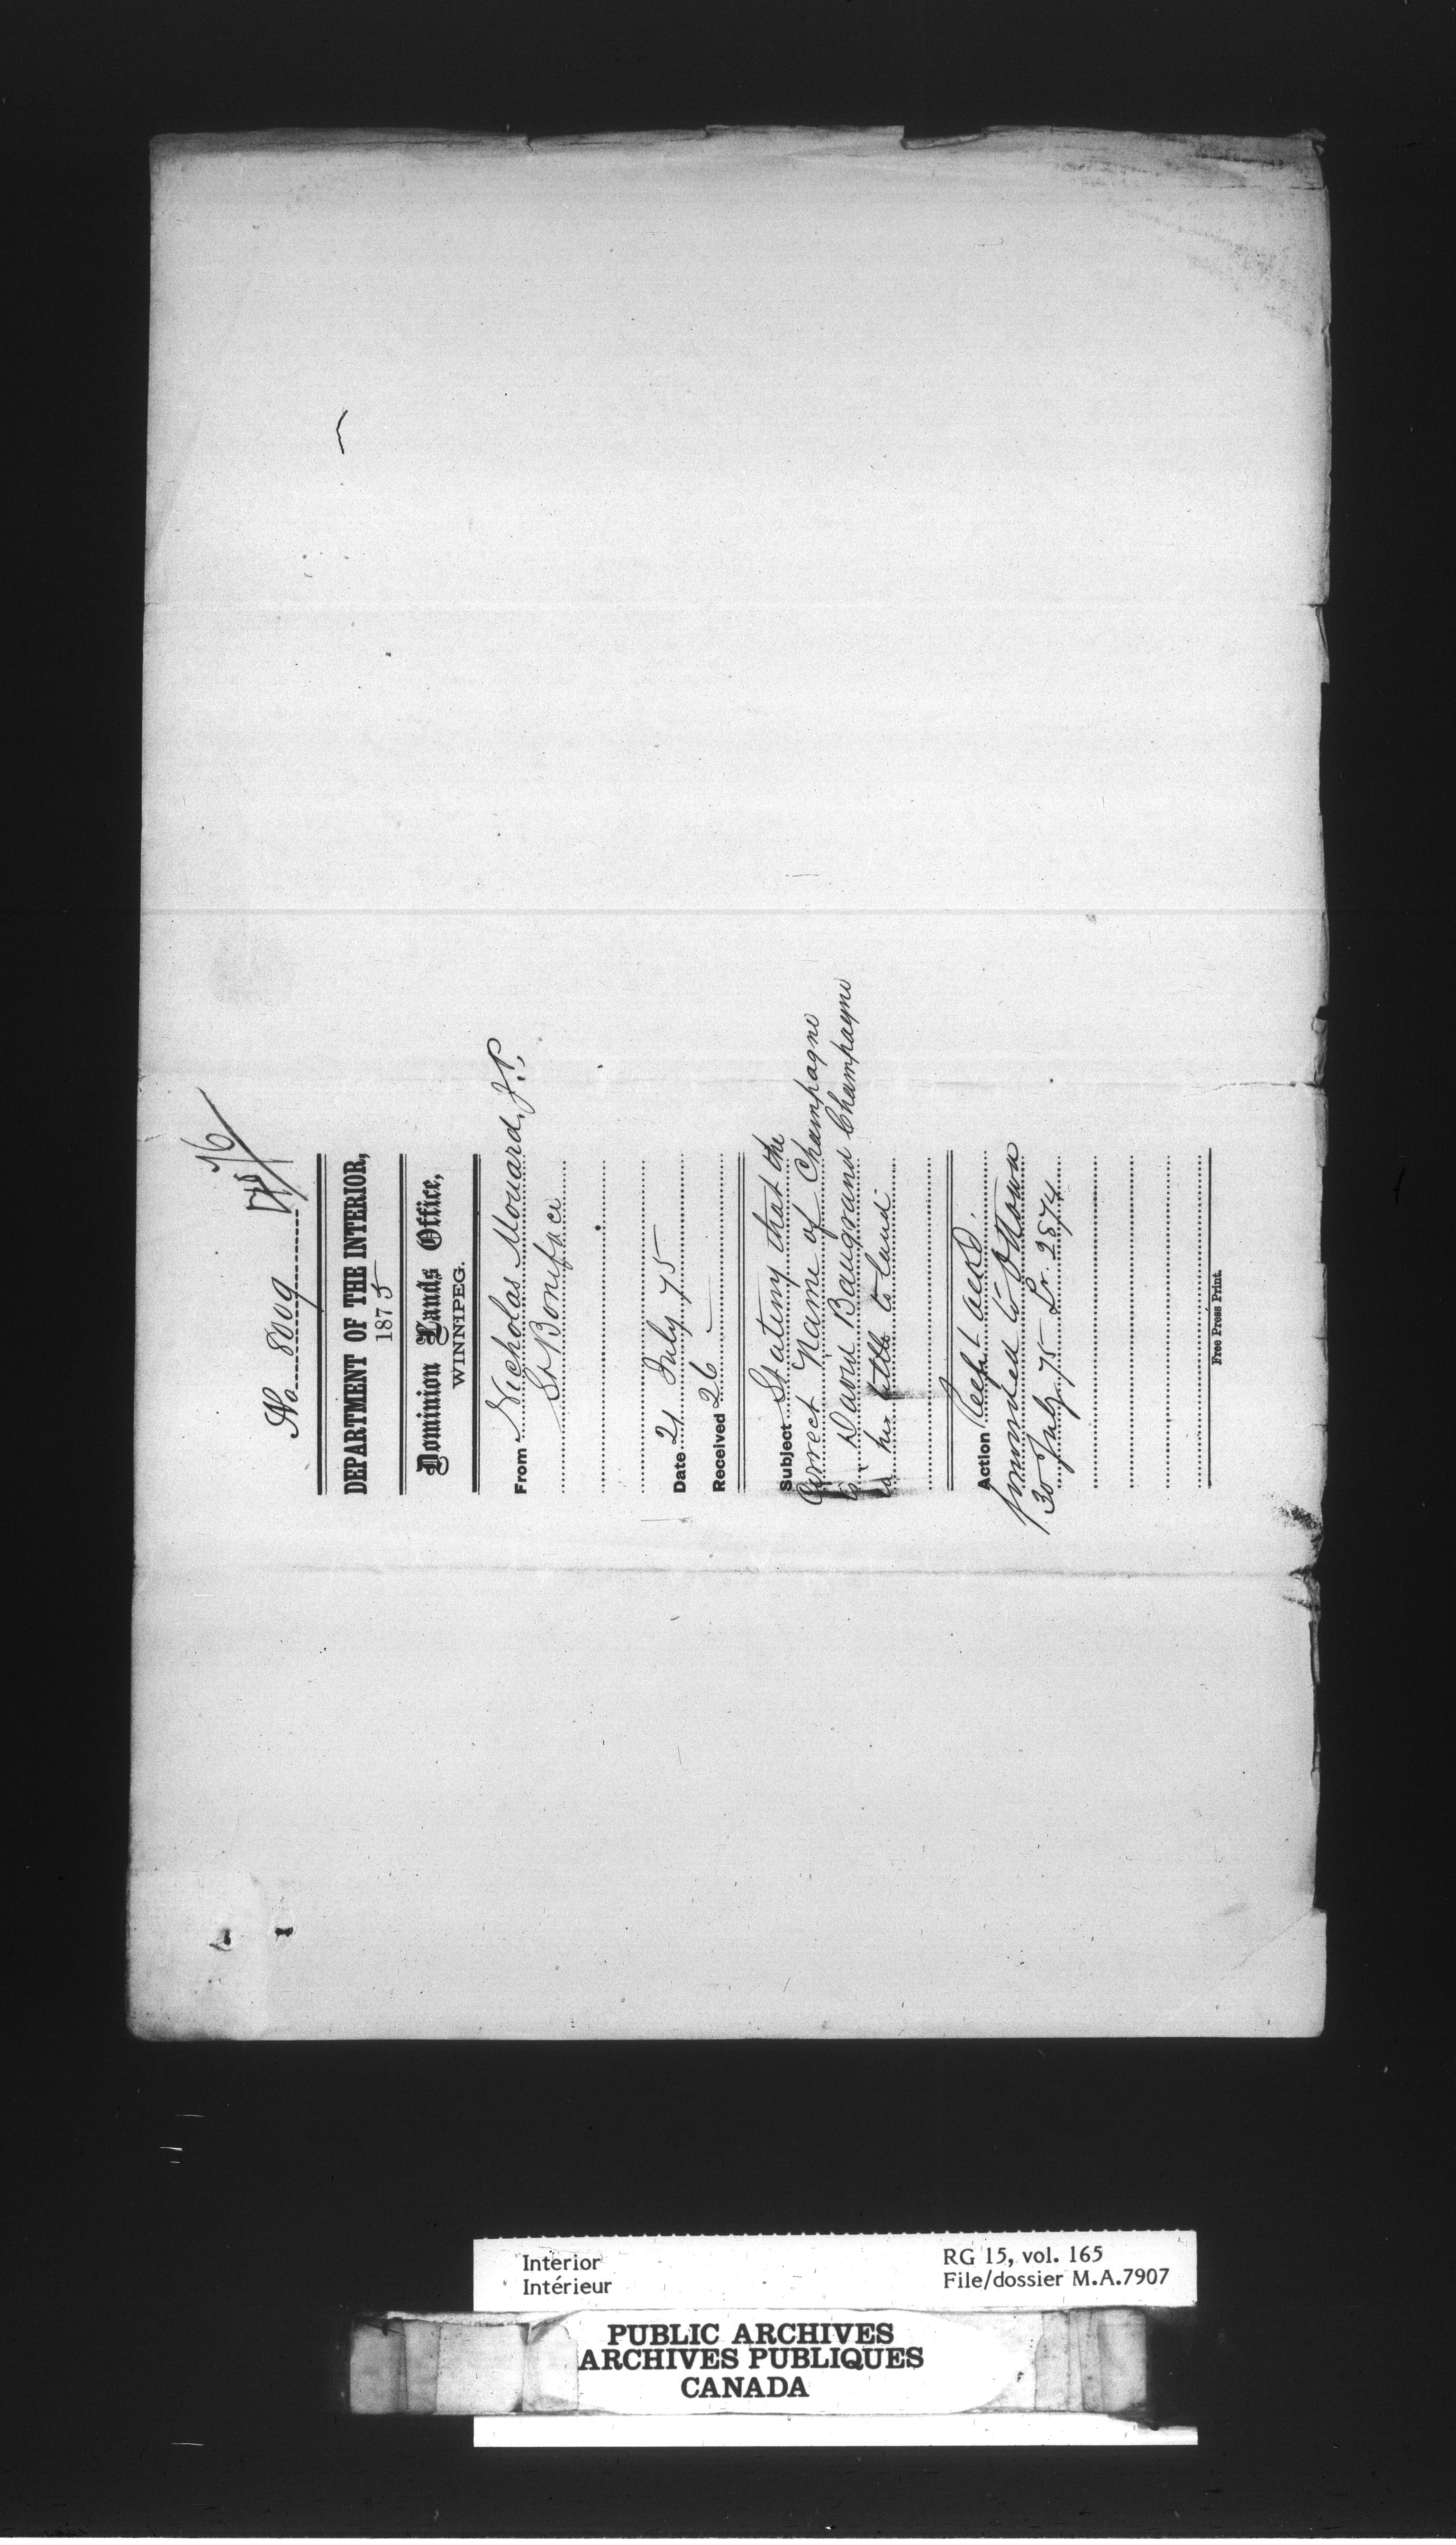 No. 8009
76
DEPARTMENT OF THE INTERIOR,
1875
Dominion Lands Office,
WINNIPEG.
From Nicholas Mouard, J.P.,
St Boniface
Date 21 July 75
Received 26
Subject Stating that the
Correct Name of Champagne
is David Baugrand Champagne
as her title to land
Action Recpt ackd.
forwarded to Ottawa
30 July 75 Lr. 2874
Free Press Print.
Interior
Intérieur
RG 15, vol. 165
File/dossier M.A.7907
PUBLIC ARCHIVES
ARCHIVES PUBLIQUES
CANADA